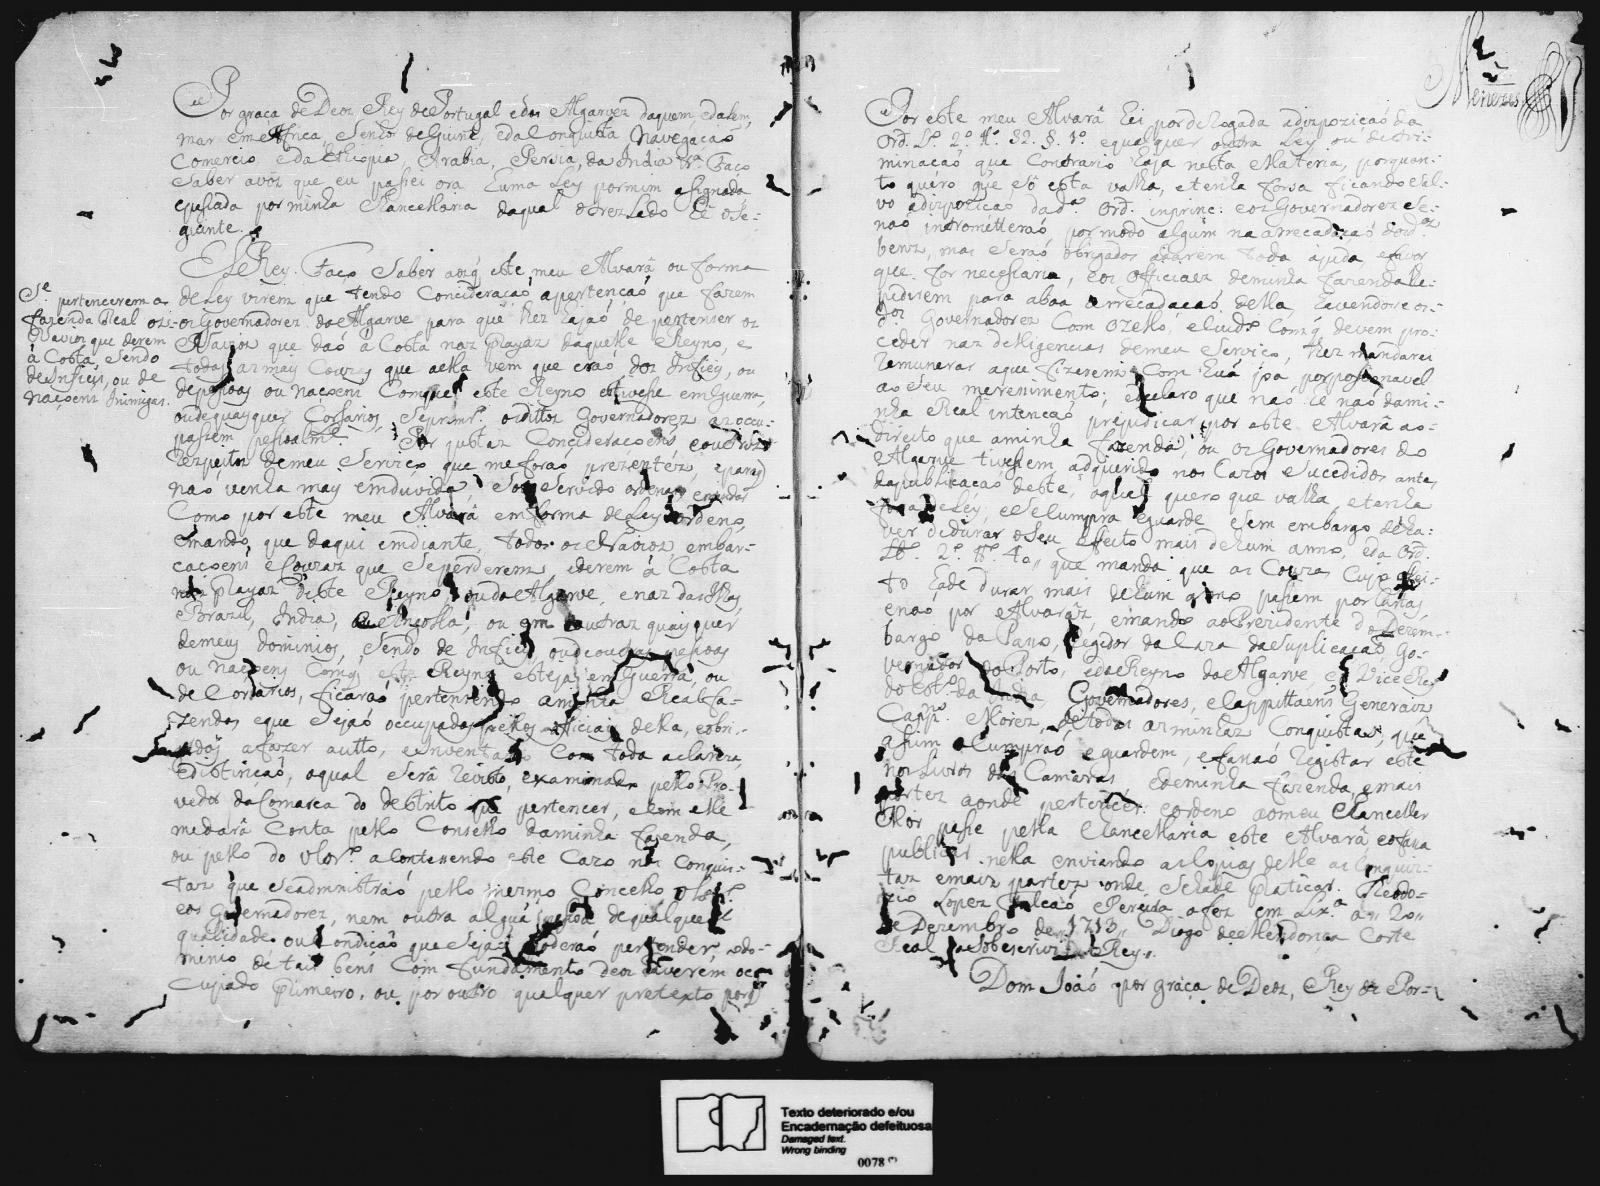 Por graca de Deoz Rey de Portugal e dos Algarvez daquem, edalem,
mar em Africa, Senhor de Guiné, eda Conquista Navegacaõ
Comercio, eda Ethiopia, Arabia, Persia, da India &ª Faço
Saber avóz que eu pasei ora huma Ley por mim asignada
epasada por minha Chancellaria daqual otrezLado hé ose=
guinte.
Eu ElRey. Faço Saber aoz q̃ este meu Alvarâ ou forma
de Ley virem que tendo Concideraçaõ apertencaõ que fazem
oz Governadorez do Algarve para que lhez hajaõ de pertenser oz
Naviox que daõ â Costa naz playaz daquelle Reyno, e
todas as mais Couzas que aella vem que craõ doz Infieiz, ou
depesoas ou nacoens Comque este Reyno estivese em Guerra,
oudequaysquer Cosarios, Seprimrº. osdittos Governadorez asoccu=
pasem pesoalmte. Por justaz Conçideracoens eoutroz
respeitos demeu Serviço que meforaõ prezentéz, epara
naõ venha mais emduvida, Sou Servido ordenar, emandar
Como por este meu Alvarâ em forma de Ley ordeno,
emando, que daqui emdiante, todos os Navioz, embar=
cacoens eCouzaz que Seperderem, ederem â Costa
naz playaz deste Reyno, ou do Algarve, enaz das Ilhas,
Brazil, India, ou Angolla, ou em outraz quaisquer
demeus dominios, Sendo de Infieis oudeoutras pesoas
ou nacoens Comq̃ este Reyno esteja em Guerra, ou
de Corsarios, ficaraõ pertensendo aminha Real fa=
zenda, eque Sejaõ occupadas pellos officiais della, eobri=
gados afazer autto, einventario Com toda aclareza,
edistincaõ, oqual Serâ Revisto, examinado pello Pro=
vedor da Comarca do destrito que pertencer, ecom elle
medarâ Conta pello Conselho daminha fazenda,
ou pello do Ultrº. acontesendo este Cazo nas Conquis=
taz que Seadministraõ pello mesmo Concelho Ultrº.
eos Governadorez, nem outra alguã pesoa dequalquer
qualidade ou Condiçaõ que Seja, poderaõ pertender odo=
minio detais bens Com fundamento deos haverem oc=
cupado primeiro, ou por outro qualquer pretexto, porq̃
Se pertencerem a
Fazenda Real os
Navios que derem
â Costa, Sendo
de Infieis, ou de
naçoens Inimigas.
Menezes
Por este meu Alvarâ hei por derogada adizpoziçaõ da
Ord. Lº. 2º. ttº. 32. §. 1º. equalquer outra Ley ou deter=
minaçaõ que Contrario haja nesta Materia, porquan=
to quero que Sô esta valha, etenha forsa ficando Sal=
vo adizpozicaõ dadª. Ord. inprinc: eoz Governadorez Se=
naõ intrometteraõ por modo algum na arrecadaçaõ dosdos.
benz, mas Seraõ obrigados adarem toda ajuda, efavor
que for necesaria, Eos Officiaez deminha Fazenda lhe
pidirem para aboa arrecadacaõ della, havendo=
dos Governadorez Com ozello, eCuido Comq̃ devem pro=
ceder naz delligencias demeu Serviço, lhez mandarei
Remunerar aque fizerem Com huã joa, porporsionavel
ao Seu merecimento; edeclaro que naõ hé naõ dami=
nha Real intencaõ prejudicar por este Alvarâ ao=
direito que aminha fazenda, ou os Governadores do
Algarve tivesem adquerido nos Cazos Sucedidos antes
dapublicacaõ deste, oqual quero que valha, etenha
força deLey, eSeCumpra eguarde Sem embargo deha=
ver dedurar oSeu effeito mais dehum anno, eda Ord.
Lº. 2º. ttº. 40,, que manda que as Couzas Cujo effei=
to hade durar mais dehum anno pasem por Cartas,
enaõ por Alvaráz, emando aoPrezidente do Dezem=
bargo do Paço, Regedor da Caza daSuplicaçaõ, Go=
vernador do Porto, edoReyno do Algarve, e Vice Rey
do Estº. da India, Governadores, eCappittaens Generaiz
Cappm. Mórez, detodas as minhas Conquistas, que
asim oCumpraõ, eguardem, efaraõ Registar este
nos Livros das Camaras, edeminha fazenda, emais
partes aonde pertencer. eordeno aomeu Chanceller
Mor pase pella Chancellaria este Alvarâ eofasa
publicar nella enviando asCopias delle as Conquiz=
taz emaiz partez onde Sehade platicar. Theodo=
zio Lopez Falcaõ Pereira afez em Lixª. a,, 20,,
de Dezembro de,,1713,, Diogo deMendonça Corte
Real oSobescrivi. ElRey..
Dom Joaõ por graça de Deoz, Rey de Por=
Texto deteriorado e/ou
Encadernação defeituosa
Damaged text.
Wrong binding
0078 (*)